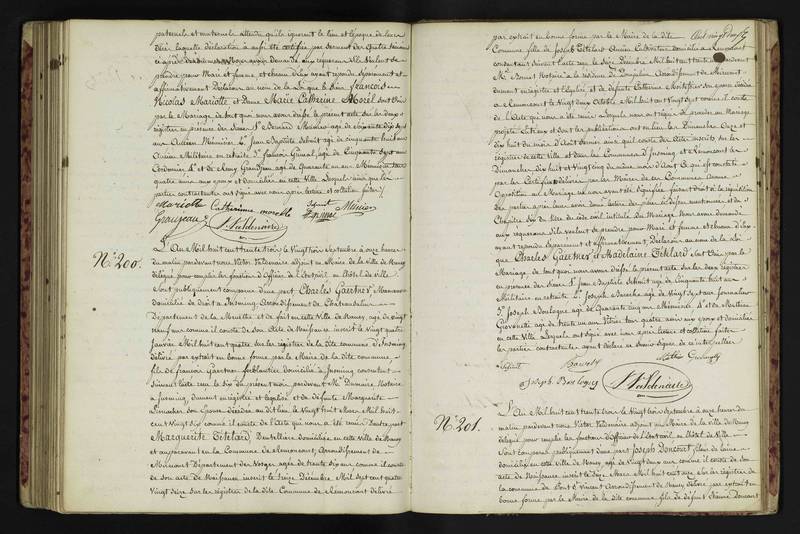 paternels et maternels attendu qu'ils ignorent le lieu et l'époque de leur
décès laquelle déclaration a aussi été certifiée par serment des quatre témoins
ci après
prendre pour Mari et femme et chacun d'eux ayant répondu séparément et
affirmativement Déclarons au nom de la Loi que le Sieur François
Nicolas Mariotte et Dame Marie Catherine Morél sont Unis
par le Mariage de tout quoi nous avons dressé le présent acte sur les deux
registres en présence des Sieurs 1° Bernard Meunier agé de soixante dix sept
ans Ancien Menuisier 2° Jean Baptiste Schmit agé de cinquante huit ans
Ancien Militaire en retraite 3° François agé de Cinquante sept ans
Cordonnier 4° et Remy Grandjean agé de Quarante un ans Menuisier tous
quatre amis aux époux et domiciliés en cette Ville Lesquels ainsi que les
parties contractantes ont signé avec nous après lecture et collation faites
Mariotte Catherinne morelle Schmit Meunier
Granjean
Valdenaire
N° 200.
L'An Mil huit cent trente trois le Vingt trois Septembre à onze heures
du matin pardevant nous Victor Valdenaire adjoint au Maire de la ville de Nancy
délégué pour remplir les fonctions d'Officier de l'Etat civil en l'hôtel de Ville
Sont publiquement comparus d'une part Charles Gaertner Menuisier
domicilié de droit à Insming Arrondissement de Chateausalins
Département de la Meurthe et de fait en cette Ville de Nancy, agé de Vingt
neuf ans comme il conste de son Acte de Naissance inscrit le Vingt quatre
Janvier Mil huit cent quatre sur les registres de la dite commune d'Insming
délivré par extrait en bonne forme par le Maire de la dite commune,
fils de François Gaertner ferblantier domicilié à Insming consentant
suivant l'acte reçu le six du présent mois pardevant Me Notaire
à Insming, dument enregistré et légalisé et de défunte Marguerite
son Epouse décédée audit lieu le Vingt huit Mars Mil huit
cent Vingt six comme il conste de l'Acte qui nous a été remis D'autre part
Marguerite Tételard Dentellière domiciliée en cette Ville de Nancy
et auparavant en la Commune de Remoncourt, Arrondissement de
Mirecourt Département des Vosges agée de trente six ans comme il conste
de son acte de Naissance inscrit le Seize Décembre Mil Sept cent quatre
Vingt seize Sur les registres de la dite Commune de Remoncourt délivré
par extrait en bonne forme par le Maire de la dite
Commune, fille de Joseph Tételard Ancien Cultivateur domicilié à Remoncourt
consentant suivant l'acte reçu le Seize Décembre Mil huit cent trente deux pardevant
Me Notaire à la résidence de Arrondissement de Mirecourt
dument enregistré et légalisé, et de défunte Catherine son épouse décédée
à Remoncourt le Vingt deux Octobre Mil huit cent Vingt sept comme il conste
de l'Acte qui nous a été remis Lesquels nous ont requis de procéder au Mariage
projeté entr'eux et dont les publications ont eu lieu les Dimanches Onze et
dix huit du mois d'Août dernier ainsi qu'il conste des Actes inscrits sur les
registres de cette Ville et dans les Communes d'Insming et Remoncourt les
Dimanches dix huit et Vingt cinq du même mois d'Août Ce qui est constaté
par les Certificats délivrés par les Maires de ces Communes Aucune
Opposition au Mariage ne nous ayant été signifiée faisant droit à la réquisition
des parties après leur avoir donné lecture des pièces ci dessus mentionnées et du
Chapitre six du titre du code civil intitulé du Mariage Nous avons demandé
aux requérans s'ils veulent se prendre pour Mari et femme et chacun d'eux
ayant répondu séparément et affirmativement, Déclarons au nom de la Loi
que Charles Gaertner et Madelaine Tételard Sont Unis par le
Mariage, de tout quoi nous avons dressé le présent acte sur les deux registres
en présence des Sieurs 1° Jean Baptiste Schmit agé de Cinquante huit ans
Militaire en retraite 2° Joseph agé de Vingt sept ans
3° Joseph Boulogne agé de Quarante cinq ans Menuisier 4° et Mathieu
agé de trente un ans Vitrier tous quatre amis aux époux et domiciliés
en cette Ville Lesquels ont signé avec nous après lecture et collation faites
les parties contractantes ayant déclaré ne savoir signer de ce interpellées
Schmit
Joseph Boulogne
Valdenaire
N° 201.
L'An Mil huit cent trente trois le Vingt trois Septembre à onze heures du
matin pardevant nous Victor Valdenaire adjoint au Maire de la Ville de Nancy
délégué pour remplir les fonctions d'Officier de l'Etat civil en l'hôtel de Ville
Sont comparus publiquement d'une part Joseph Doncourt fileur de laine
domicilié en cette Ville de Nancy agé de Vingt deux ans comme il conste de son
acte de Naissance inscrit le dix Mars Mil huit cent onze sur les registres de
la commune de Pont St Vincent Arrondissement de Nancy délivré par extrait en
bonne forme par le Maire de la dite commune fils de défunt Doncourt